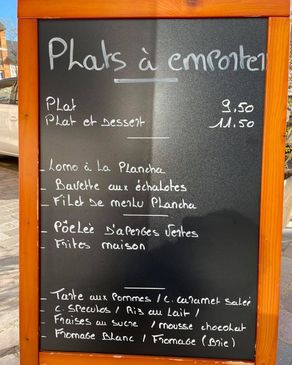 Plats à emporter
Plat 9,50
Plat et Dessert 11,50
- Lomo à la Plancha
- Bavette aux échalotes
- Filet de merlu Plancha
- Pôelèe D'asperges vertes
- Frites maison
- Tarte aux Pommes / C. caramel salé
C. Speculos / Ris au Lait /
Fraises au sucre / mousse chocolat
- Fromage Blanc / Fromage (Brie)